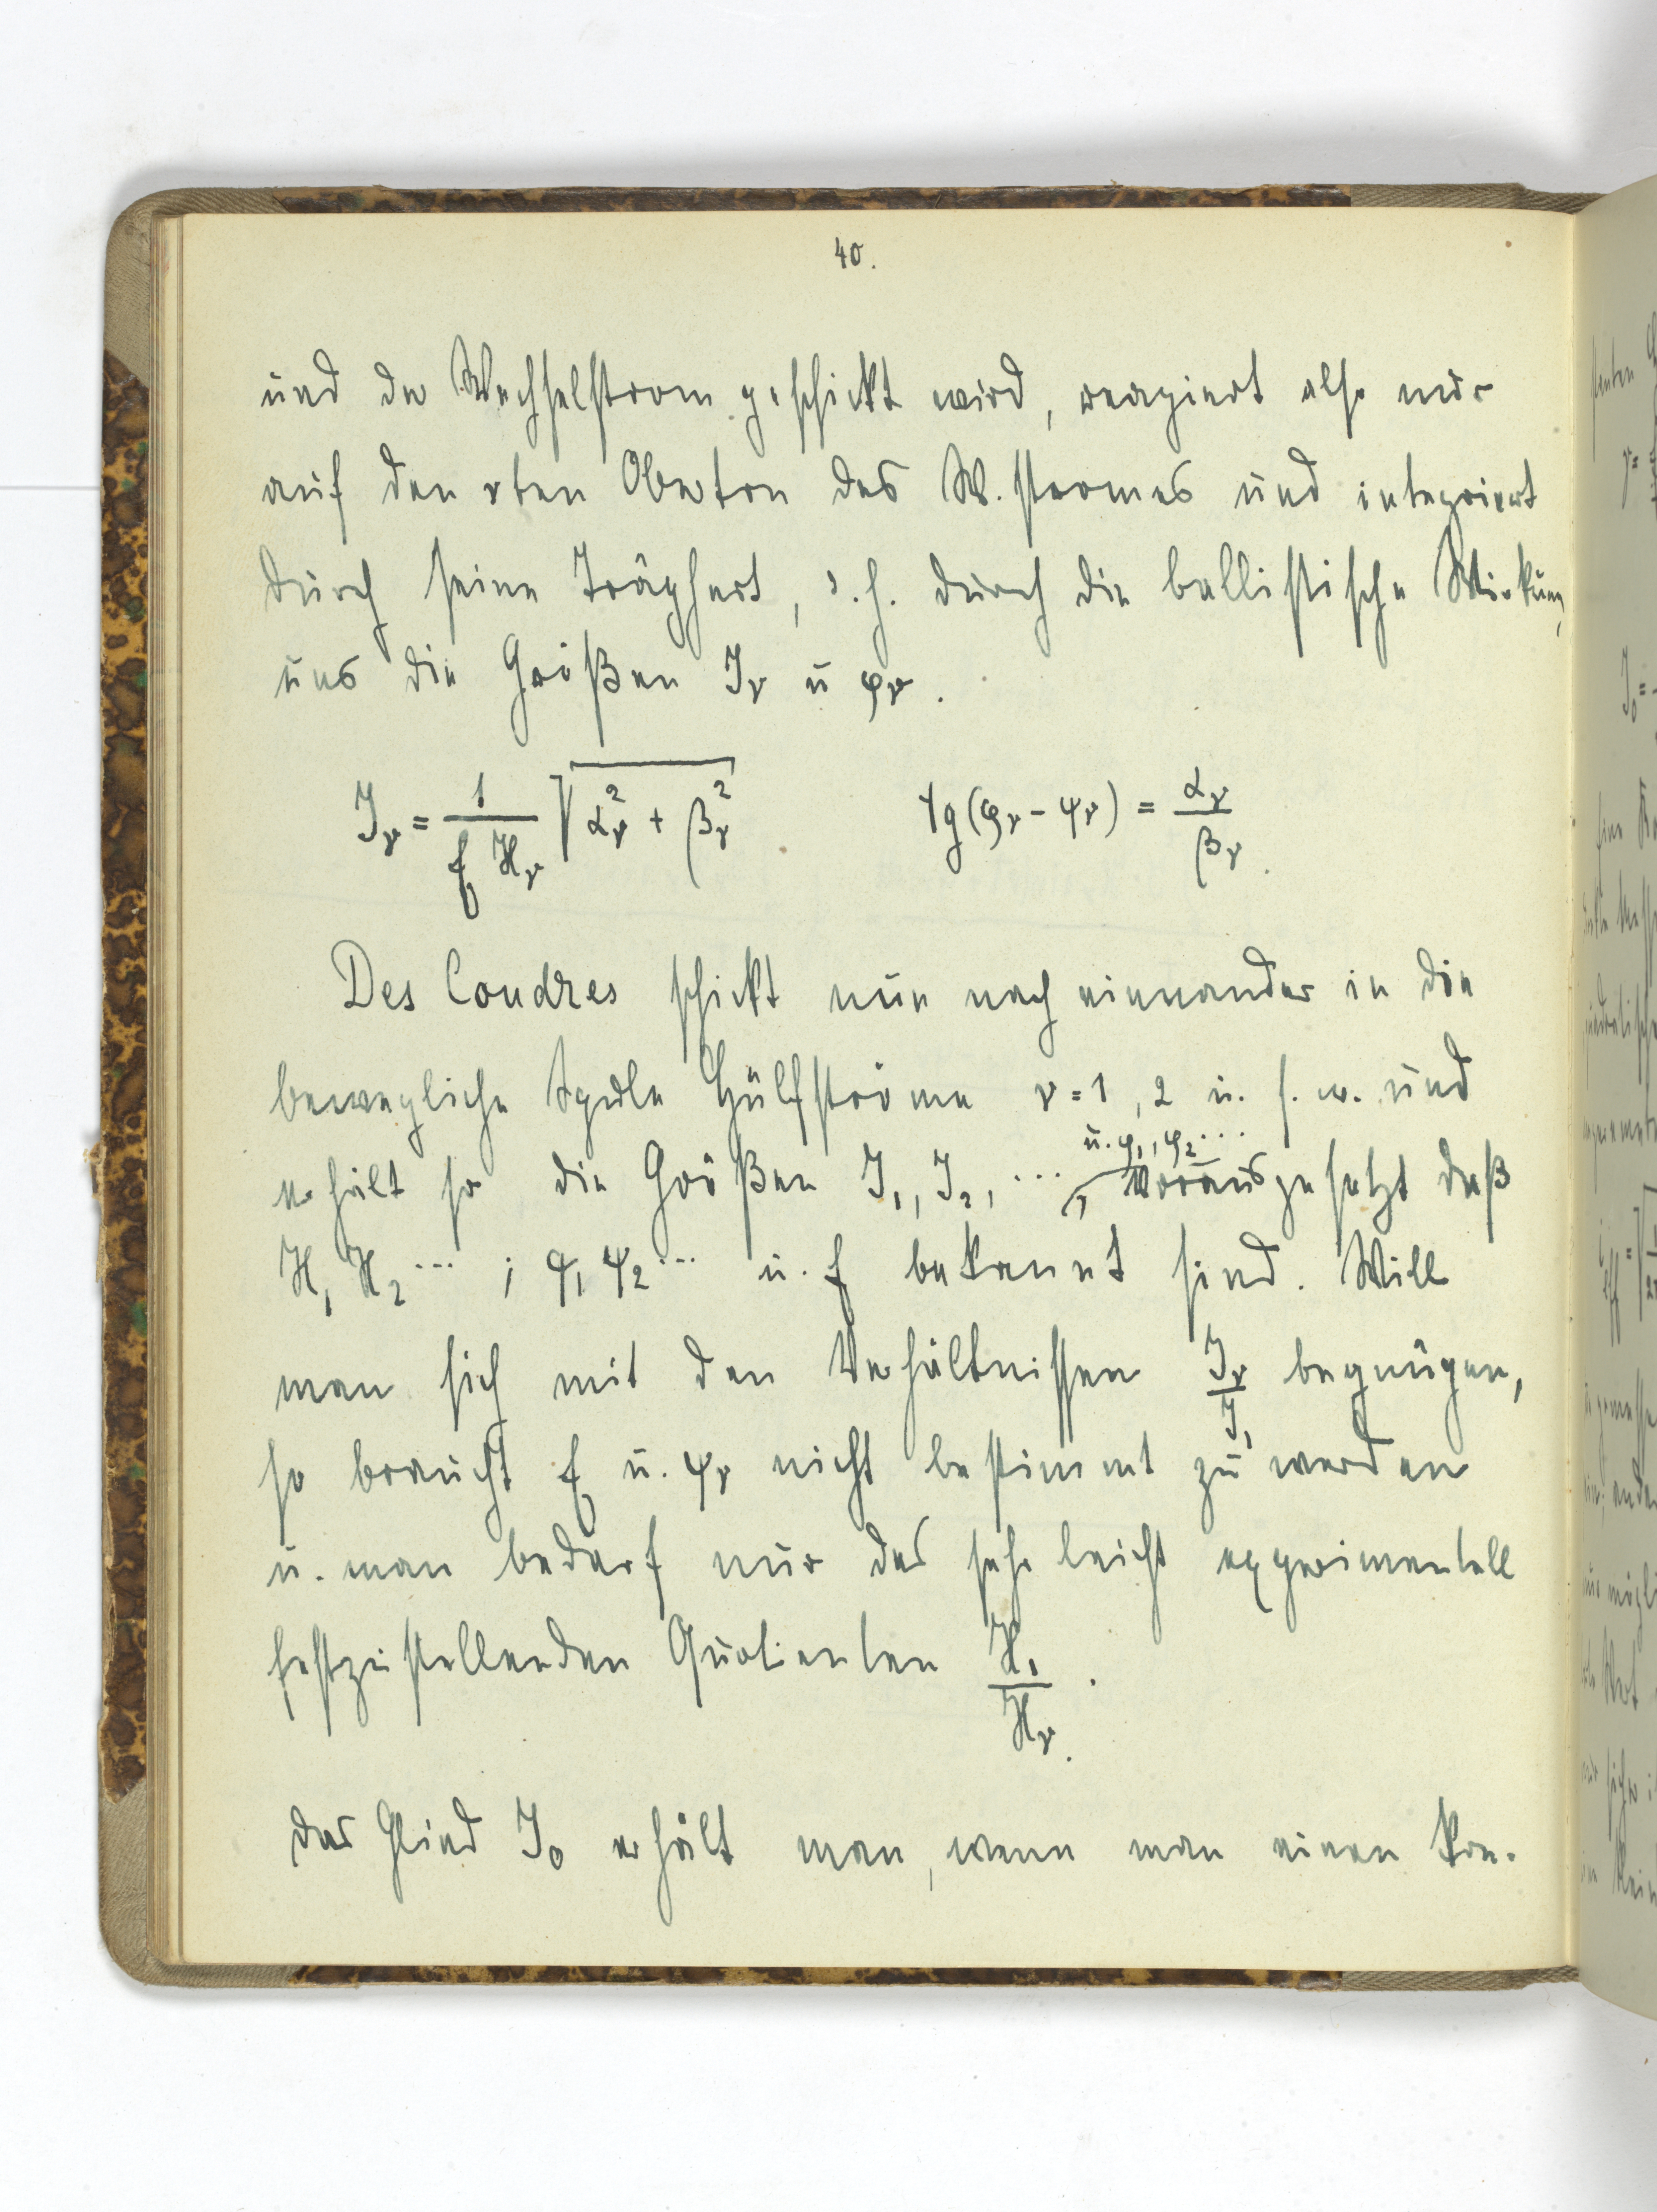 40.
und der Wechselstrom geschickt wird, reagiert also nur
auf den νten Oberton des W.stromes und integriert
durch seine Trägheit, d.h. durch die ballistische Wirkung,
uns die Größen J_ν u φ_ν.
J_ν = 1/(f H_ν) √(α_ν² + β_ν²) . tg(φ_ν - ψ_ν) = α_ν/β_ν .
Des Coudres schickt nun nach einander in die
bewegliche Spule Hülfströme ν = 1, 2 u. s. w. und
u. φ₁, φ₂ ...
erhält so die Größen J₁, J₂, ... , vorausgesetzt daß
H₁ H₂ ... ; ψ₁ ψ₂ ... u. f bekannt sind. Will
man sich mit den Verhältnissen J_ν/J₁ begnügen,
so braucht f u. ψ_ν nicht bestimmt zu werden
u. man bedarf nur des sehr leicht experimentell
festzustellenden Quotienten H₁/H_ν .
Das Glied J₀ erhält man, wenn man einen kon-